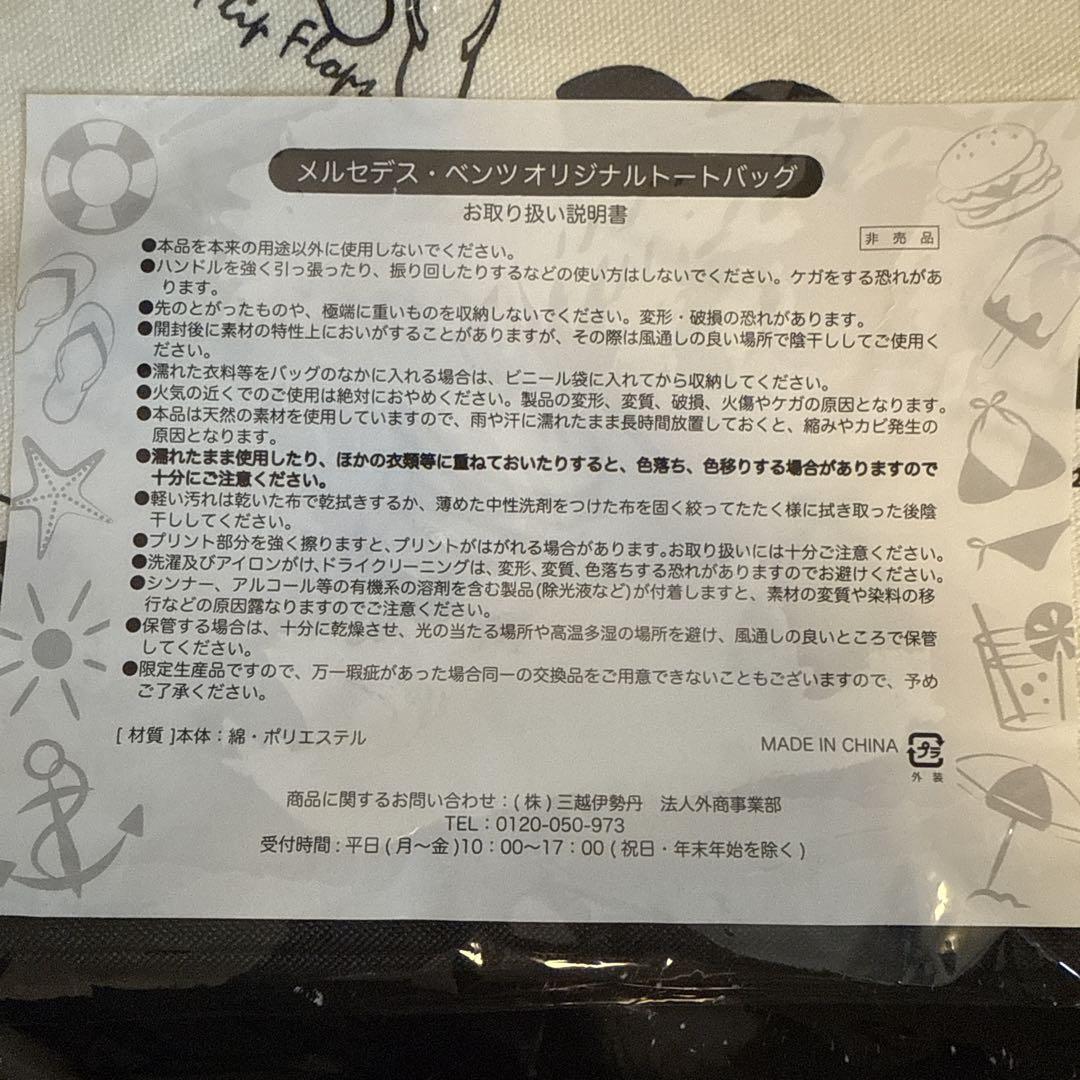 Flip Flops
メルセデス・ベンツ オリジナルトートバッグ
お取り扱い説明書
非売品
●本品を本来の用途以外に使用しないでください。
●ハンドルを強く引っ張ったり、振り回したりするなどの使い方はしないでください。ケガをする恐れがあ
ります。
●先のとがったものや、極端に重いものを収納しないでください。変形・破損の恐れがあります。
●開封後に素材の特性上においがすることがありますが、その際は風通しの良い場所で陰干ししてご使用く
ださい。
●濡れた衣料等をバッグのなかに入れる場合は、ビニール袋に入れてから収納してください。
●火気の近くでのご使用は絶対におやめください。製品の変形、変質、破損、火傷やケガの原因となります。
●本品は天然の素材を使用していますので、雨や汗に濡れたまま長時間放置しておくと、縮みやカビ発生の
原因となります。
●濡れたまま使用したり、ほかの衣類等に重ねておいたりすると、色落ち、色移りする場合がありますので
十分にご注意ください。
●軽い汚れは乾いた布で乾拭きするか、薄めた中性洗剤をつけた布を固く絞ってたたく様に拭き取った後陰
干ししてください。
●プリント部分を強く擦りますと、プリントがはがれる場合があります。お取り扱いには十分ご注意ください。
●洗濯及びアイロンがけ、ドライクリーニングは、変形、変質、色落ちする恐れがありますのでお避けください。
●シンナー、アルコール等の有機系の溶剤を含む製品(除光液など)が付着しますと、素材の変質や染料の移
行などの原因露なりますのでご注意ください。
●保管する場合は、十分に乾燥させ、光の当たる場所や高温多湿の場所を避け、風通しの良いところで保管
してください。
●限定生産品ですので、万一瑕疵があった場合同一の交換品をご用意できないこともございますので、予め
ご了承ください。
[ 材質 ]本体：綿・ポリエステル
MADE IN CHINA
プラ
外装
商品に関するお問い合わせ：( 株 ) 三越伊勢丹　法人外商事業部
TEL：0120-050-973
受付時間：平日 ( 月〜金 )10：00〜17：00 ( 祝日・年末年始を除く )